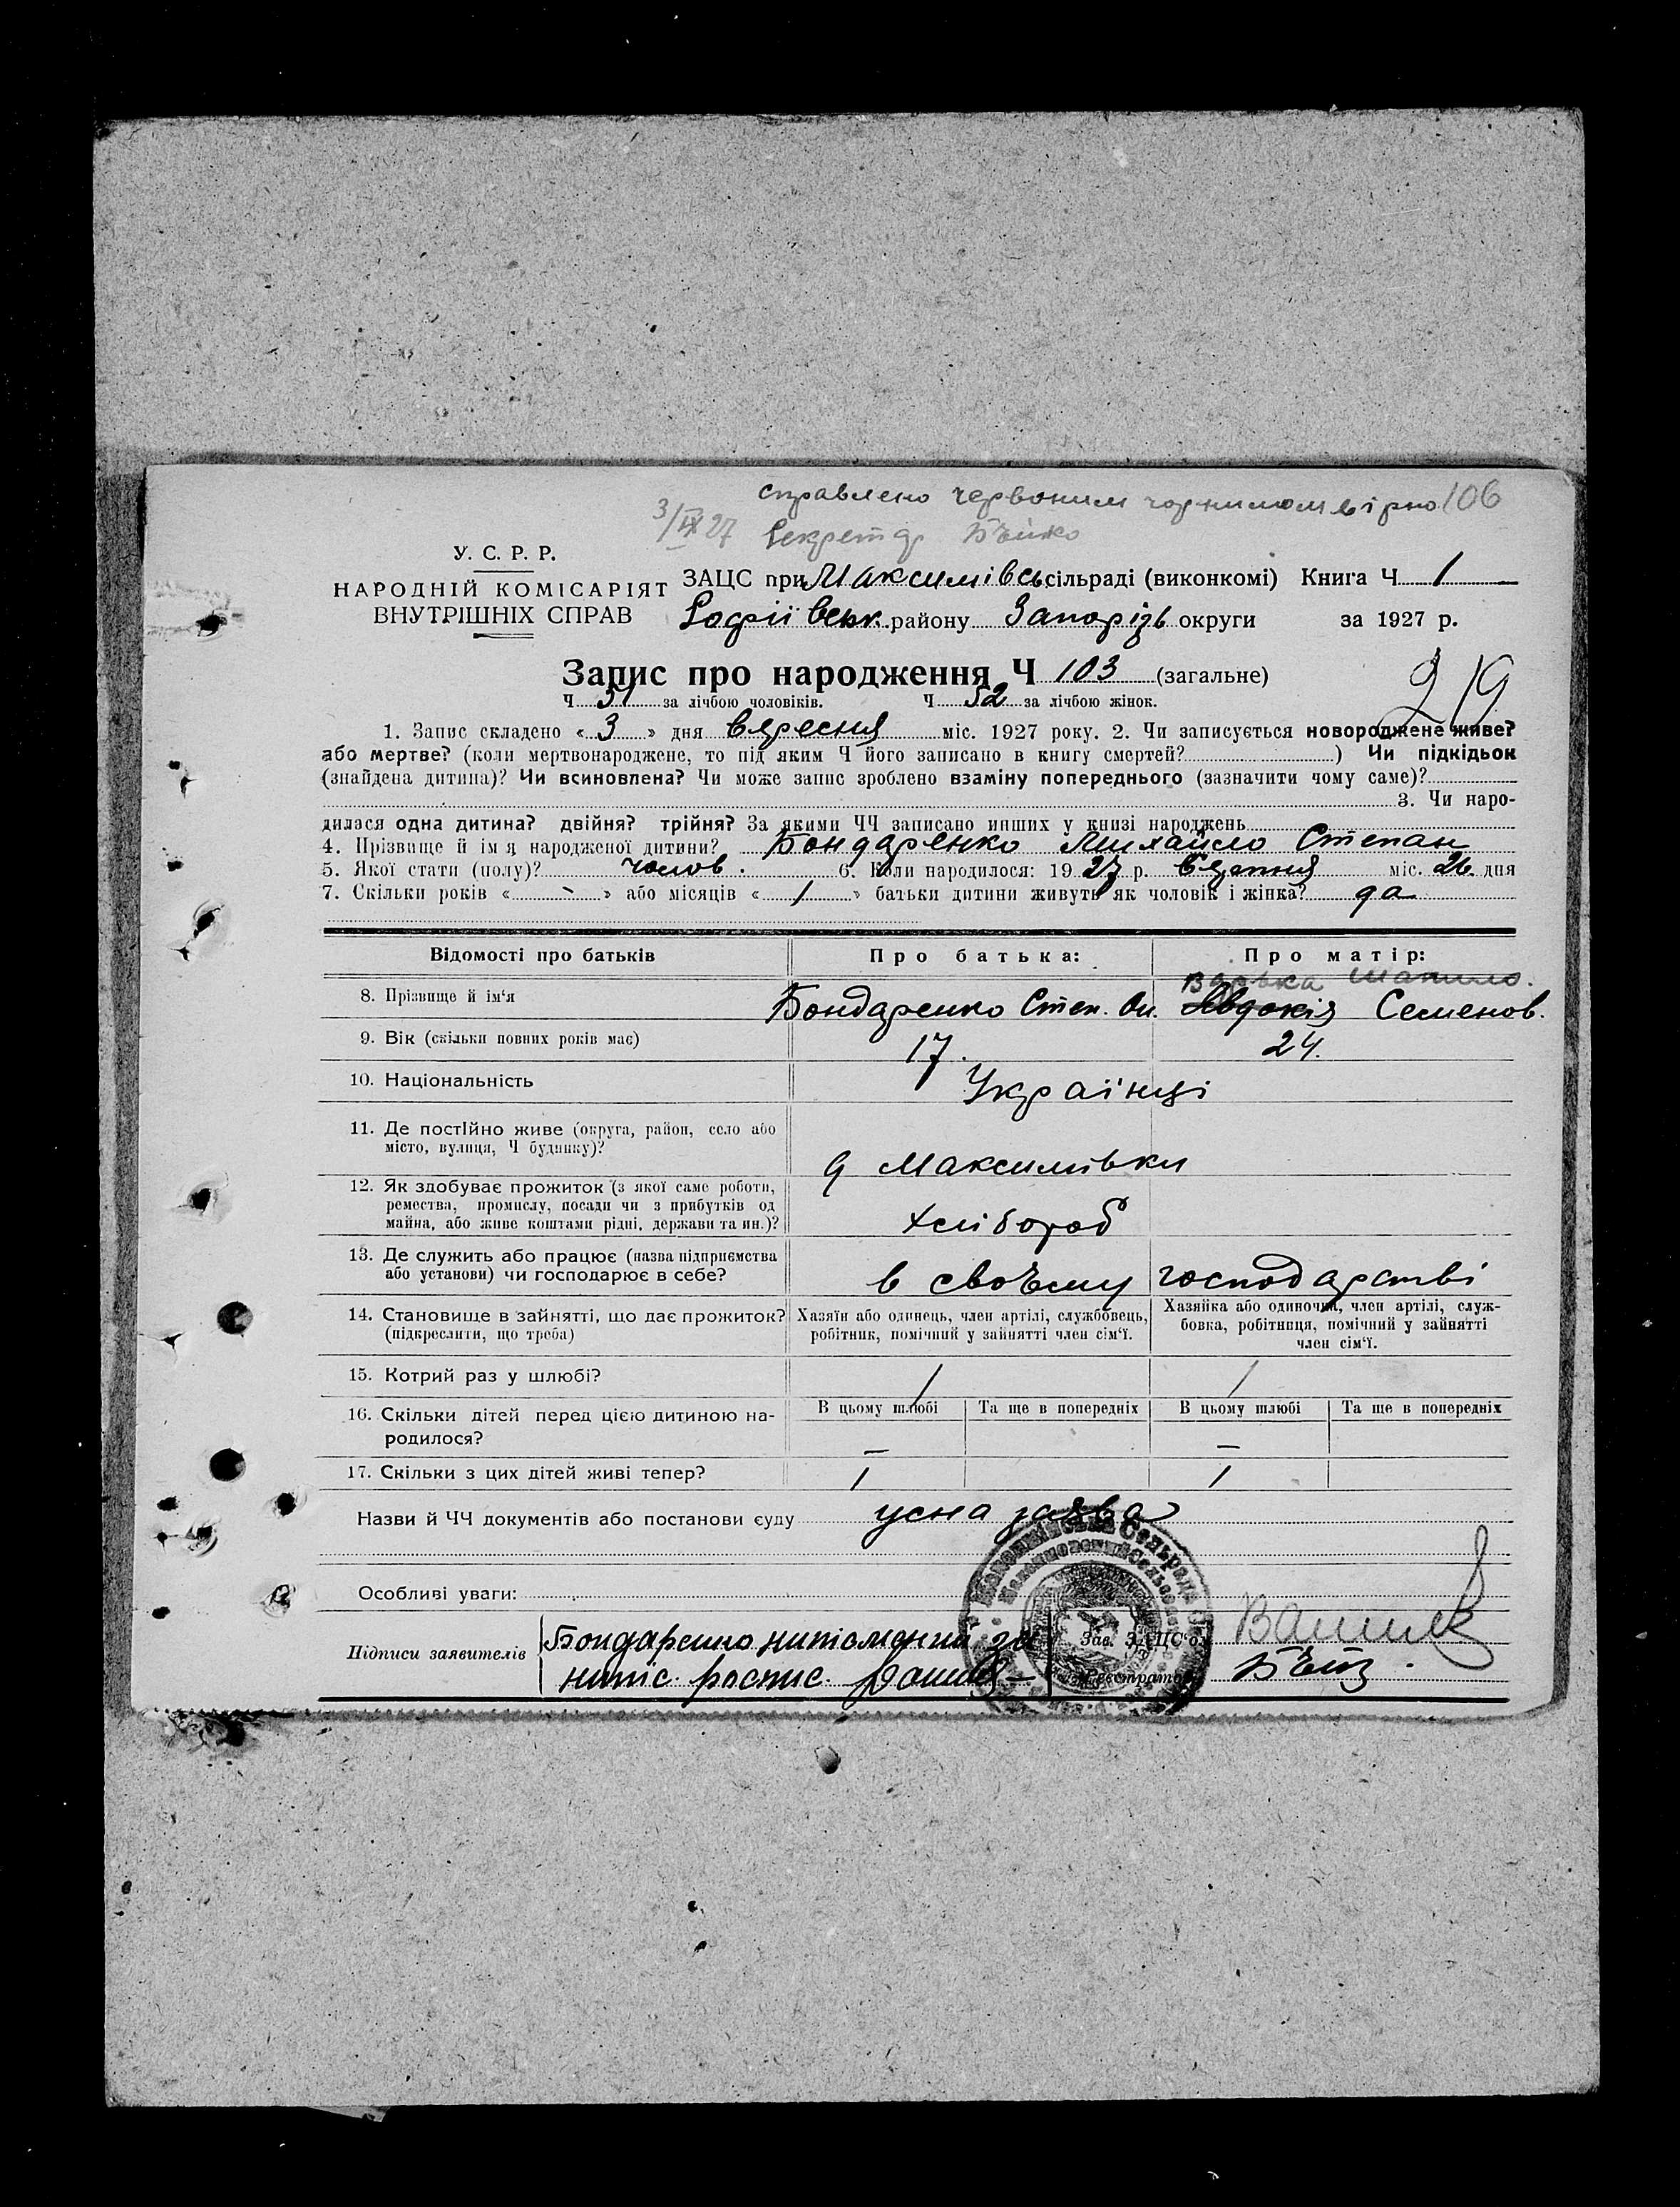 справлено червоним чорнилом вірно 106
3/IX 27 Секретар
У. С. Р. Р.
НАРОДНІЙ КОМІСАРІЯТ
ВНУТРІШНІХ СПРАВ
ЗАЦС при Максимівсь сільраді (виконкомі) Книга Ч 1
Софіївськ. району Запорізь округи за 1927 р.
Запис про народження Ч 103 (загальне)
219
Ч 51 за лічбою чоловіків. Ч 52 за лічбою жінок.
1. Запис складено « 3 » дня вересня міс. 1927 року. 2. Чи записується новороджене живе?
або мертве? (коли мертвонароджене, то під яким Ч його записано в книгу смертей? ) Чи підкідьок
(знайдена дитина)? Чи всиновлена? Чи може запис зроблено взаміну попереднього (зазначити чому саме)?
3. Чи наро-
дилася одна дитина? двійня? трійня? За якими ЧЧ записано инших у книзі народжень
4. Прізвище й ім'я народженої дитини? Бондаренко Михайло Степан
5. Якої стати (полу)? чолов. 6. Коли народилося: 19 27 р. міс. 26 дня
7. Скільки років « - » або місяців « 1 » батьки дитини живуть як чоловік і жінка? да
Відомості про батьків Про батька: Про матір:
Варька Шапило.
8. Прізвище й ім'я Бондаренко Степ. Он. Явдокія Семенов.
9. Вік (скільки повних років має) 17. 24.
10. Національність Українці
11. Де постійно живе (округа, район, село або
місто, вулиця, Ч будинку)?
д Максимівки
12. Як здобуває прожиток (з якої саме роботи,
ремества, промислу, посади чи з прибутків од
майна, або живе коштами рідні, держави та ин.)?
хлібороб
13. Де служить або працює (назва підприємства
або установи) чи господарює в себе?
в своєму господарстві
14. Становище в зайнятті, що дає прожиток?
(підкреслити, що треба)
Хазяїн або одинець, член артілі, службовець,
робітник, помічний у зайнятті член сім'ї.
Хазяйка або одиночка, член артілі, служ-
бовка, робітниця, помічний у зайнятті
член сім'ї.
15. Котрий раз у шлюбі? 1 1
16. Скільки дітей перед цією дитиною на-
родилося?
В цьому шлюбі Та ще в попередніх В цьому шлюбі Та ще в попередніх
- -
17. Скільки з цих дітей живі тепер? 1 1
Назви й ЧЧ документів або постанови суду усна заява
Особливі уваги:
Підписи заявителів Бондаренко за
роспис.
Зав. ЗАЦС'ом
Реєстратор